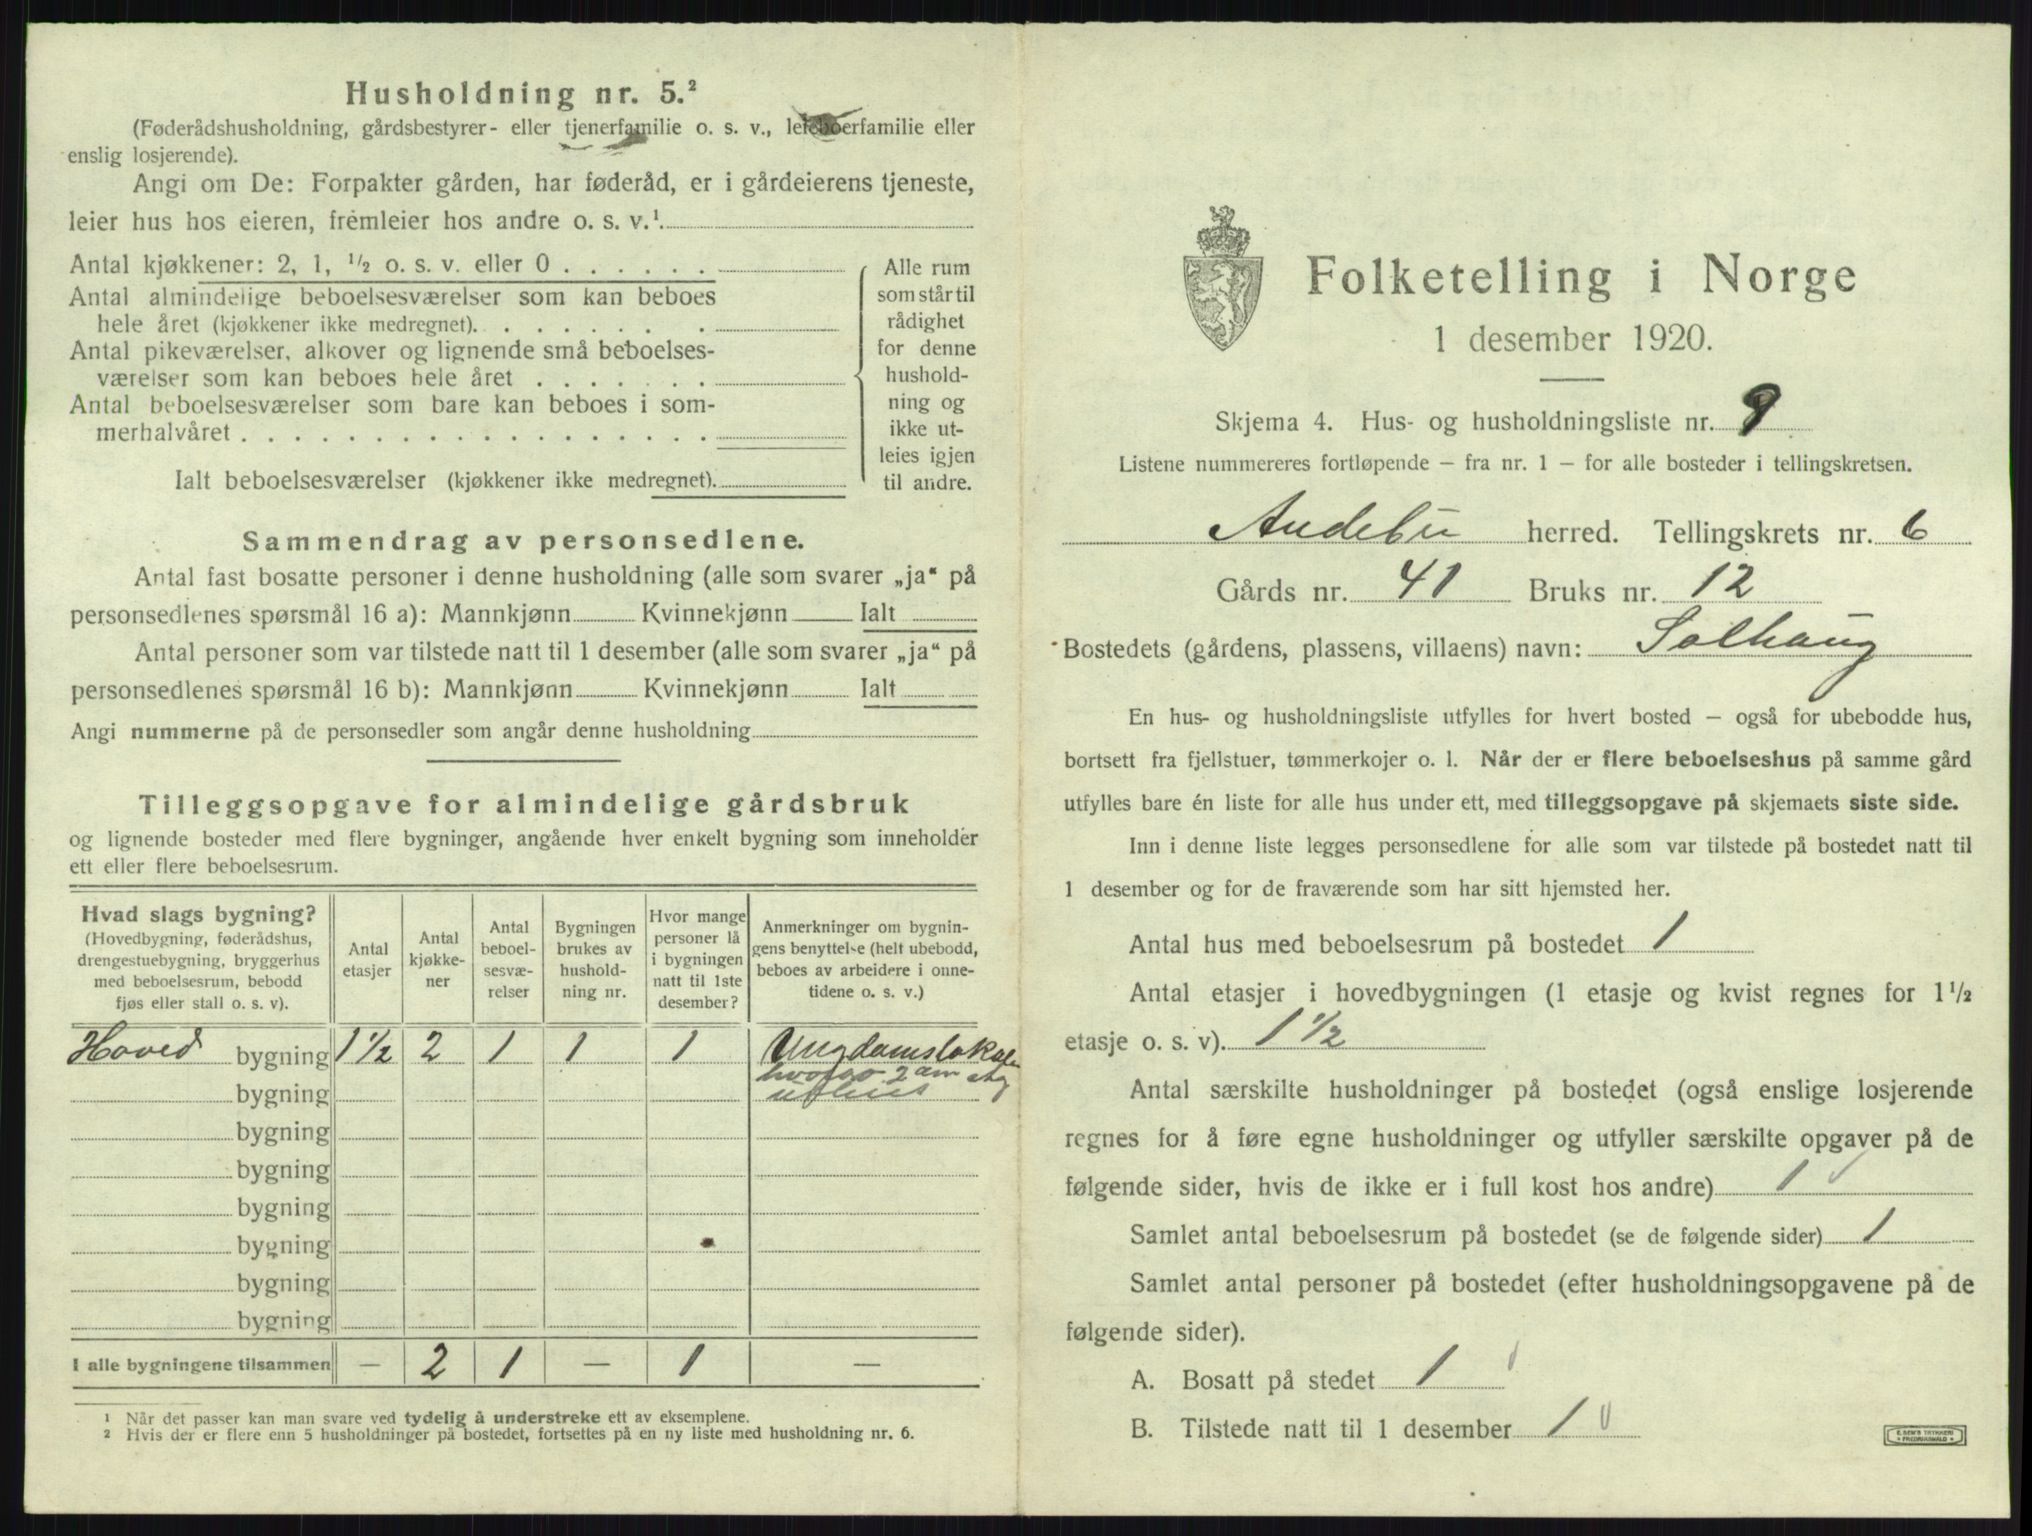 Husholdning nr. 5.²
(Føderådshusholdning, gårdsbestyrer- eller tjenerfamilie o. s. v., leieboerfamilie eller
enslig losjerende).
Angi om De: Forpakter gården, har føderåd, er i gårdeierens tjeneste,
leier hus hos eieren, fremleier hos andre o. s. v.¹
Antal kjøkkener: 2, 1, ½ o. s. v. eller 0
Antal almindelige beboelsesværelser som kan beboes
hele året (kjøkkener ikke medregnet)
Antal pikeværelser, alkover og lignende små beboelses-
værelser som kan beboes hele året
Antal beboelsesværelser som bare kan beboes i som-
merhalvåret
Ialt beboelsesværelser (kjøkkener ikke medregnet)
Alle rum
som står til
rådighet
for denne
hushold-
ning og
ikke ut-
leies igjen
til andre.
Sammendrag av personsedlene.
Antal fast bosatte personer i denne husholdning (alle som svarer „ja“ på
personsedlenes spørsmål 16 a): Mannkjønn Kvinnekjønn Ialt
Antal personer som var tilstede natt til 1 desember (alle som svarer „ja“ på
personsedlenes spørsmål 16 b): Mannkjønn Kvinnekjønn Ialt
Angi nummerne på de personsedler som angår denne husholdning
Tilleggsopgave for almindelige gårdsbruk
og lignende bosteder med flere bygninger, angående hver enkelt bygning som inneholder
ett eller flere beboelsesrum.
Hvad slags bygning?
(Hovedbygning, føderådshus,
drengestuebygning, bryggerhus
med beboelsesrum, bebodd
fjøs eller stall o. s. v).
Antal
etasjer
Antal
kjøkke-
ner
Antal
beboel-
sesvæ-
relser
Bygningen
brukes av
hushold-
ning nr.
Hvor mange
personer lå
i bygningen
natt til 1ste
desember?
Anmerkninger om bygnin-
gens benyttelse (helt ubebodd,
beboes av arbeidere i onne-
tidene o. s. v.)
Hoved bygning 1½ 2 1 1 1 Ungdomslokale
bygning
bygning
bygning
bygning
bygning
bygning
bygning
I alle bygningene tilsammen — 2 1 — 1 —
¹ Når det passer kan man svare ved tydelig å understreke ett av eksemplene.
² Hvis der er flere enn 5 husholdninger på bostedet, fortsettes på en ny liste med husholdning nr. 6.
Folketelling i Norge
1 desember 1920.
Skjema 4. Hus- og husholdningsliste nr. 9
Listene nummereres fortløpende – fra nr. 1 – for alle bosteder i tellingskretsen.
Andebu herred. Tellingskrets nr. 6
Gårds nr. 41 Bruks nr. 12
Bostedets (gårdens, plassens, villaens) navn: Solhaug
En hus- og husholdningsliste utfylles for hvert bosted – også for ubebodde hus,
bortsett fra fjellstuer, tømmerkojer o. l. Når der er flere beboelseshus på samme gård
utfylles bare én liste for alle hus under ett, med tilleggsopgave på skjemaets siste side.
Inn i denne liste legges personsedlene for alle som var tilstede på bostedet natt til
1 desember og for de fraværende som har sitt hjemsted her.
Antal hus med beboelsesrum på bostedet 1
Antal etasjer i hovedbygningen (1 etasje og kvist regnes for 1½
etasje o. s. v). 1½
Antal særskilte husholdninger på bostedet (også enslige losjerende
regnes for å føre egne husholdninger og utfyller særskilte opgaver på de
følgende sider, hvis de ikke er i full kost hos andre) 1
Samlet antal beboelsesrum på bostedet (se de følgende sider) 1
Samlet antal personer på bostedet (efter husholdningsopgavene på de
følgende sider).
A. Bosatt på stedet 1
B. Tilstede natt til 1 desember 1